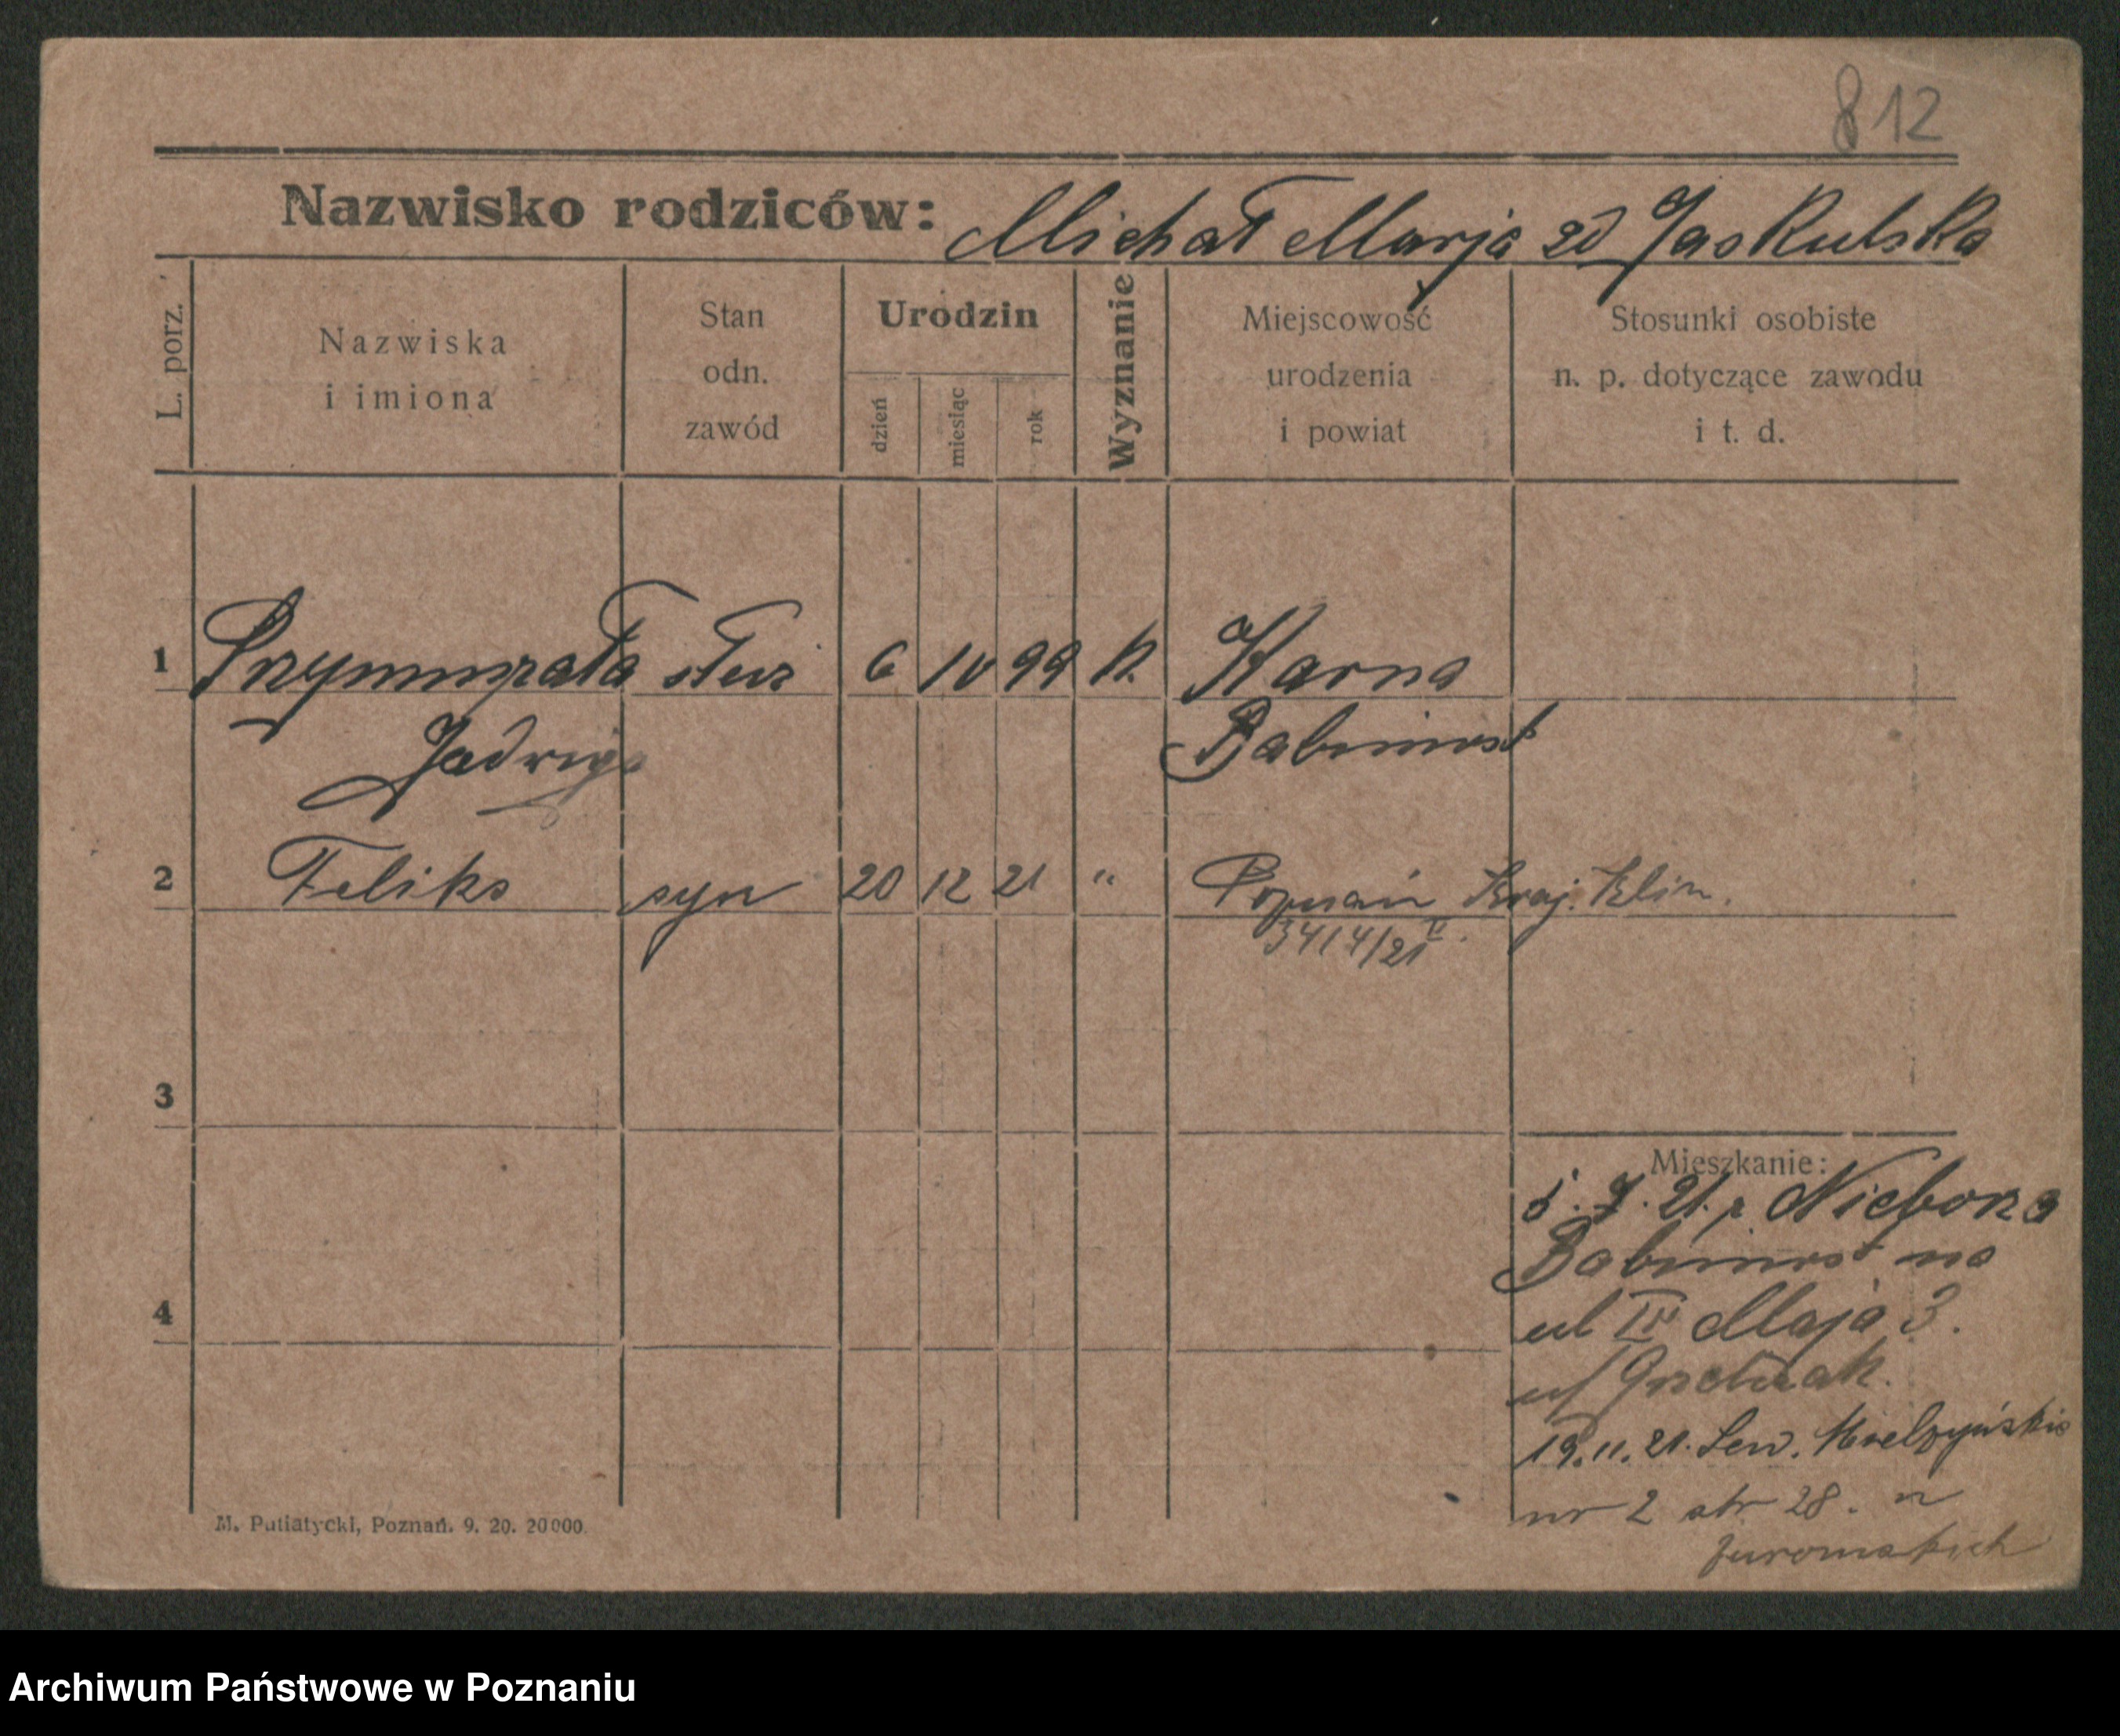 812
Nazwisko rodziców: Michał Marja zd Jaskulska
L. porz.
Nazwiska i imiona
Stan odn. zawód
Urodzin
dzień
miesiąc
rok
Wyznanie
Miejscowość urodzenia i powiat
Stosunki osobiste n. p. dotyczące zawodu i t. d.
1 służ 6 10 99 k. Karna
Jadwiga Babimost
2 Feliks syn 20 12 21 " Poznań Kraj. Klin.
3414/21 II.
3
Mieszkanie:
5. 7. 21. z
Babimost na
4
ul III Maja 3.
19. 11. 21. Sew. Mielżyńskie
nr 2 str 28. u
M. Putiatycki, Poznań. 9. 20. 20000.
Archiwum Państwowe w Poznaniu